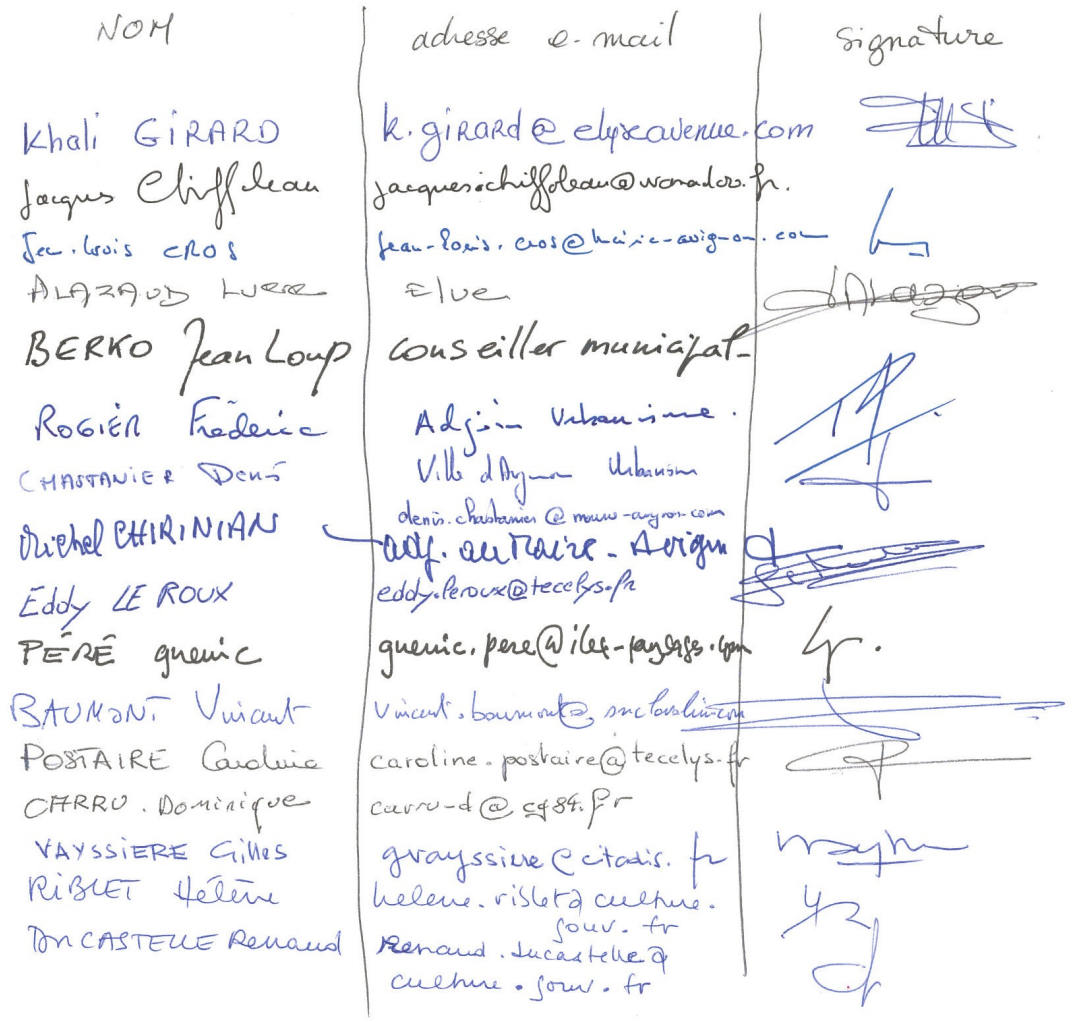 NOM adresse e-mail Signature
Khali GIRARD k.girard@elyseavenue.com
Jacques Chiffoleau jacques.chiffoleau@wanadoo.fr.
Jean-Louis CROS jean-louis.cros@mairie-avignon.com
ALAZAUD Elue
BERKO Jean Loup conseiller municipal
ROGIER Fréderic Adjoint Urbanisme.
CHASTANIER Denis Ville d'Avignon Urbanisme
denis.chastanier@mairie-avignon.com
Michel CHIRINIAN adj. au Maire - Avignon
Eddy LE ROUX eddy.leroux@tecelys.fr
PÉRÉ guenic guenic.pere@ilex-paysage.com
BAUMONT Vincent vincent.baumont@
POSTAIRE Caroline caroline.postaire@tecelys.fr
CARRU. Dominique carru-d@cg84.fr
VAYSSIERE Gilles gvayssiere@citadis.fr
RIBLET Hélène helene.riblet@culture.
gouv.fr
DUCASTELLE Renaud Renaud.ducastelle@
culture.gouv.fr